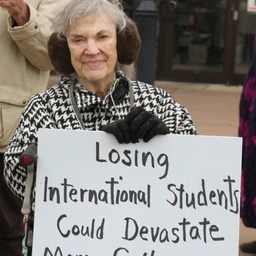 Losing
International Students
Could Devastate
Many